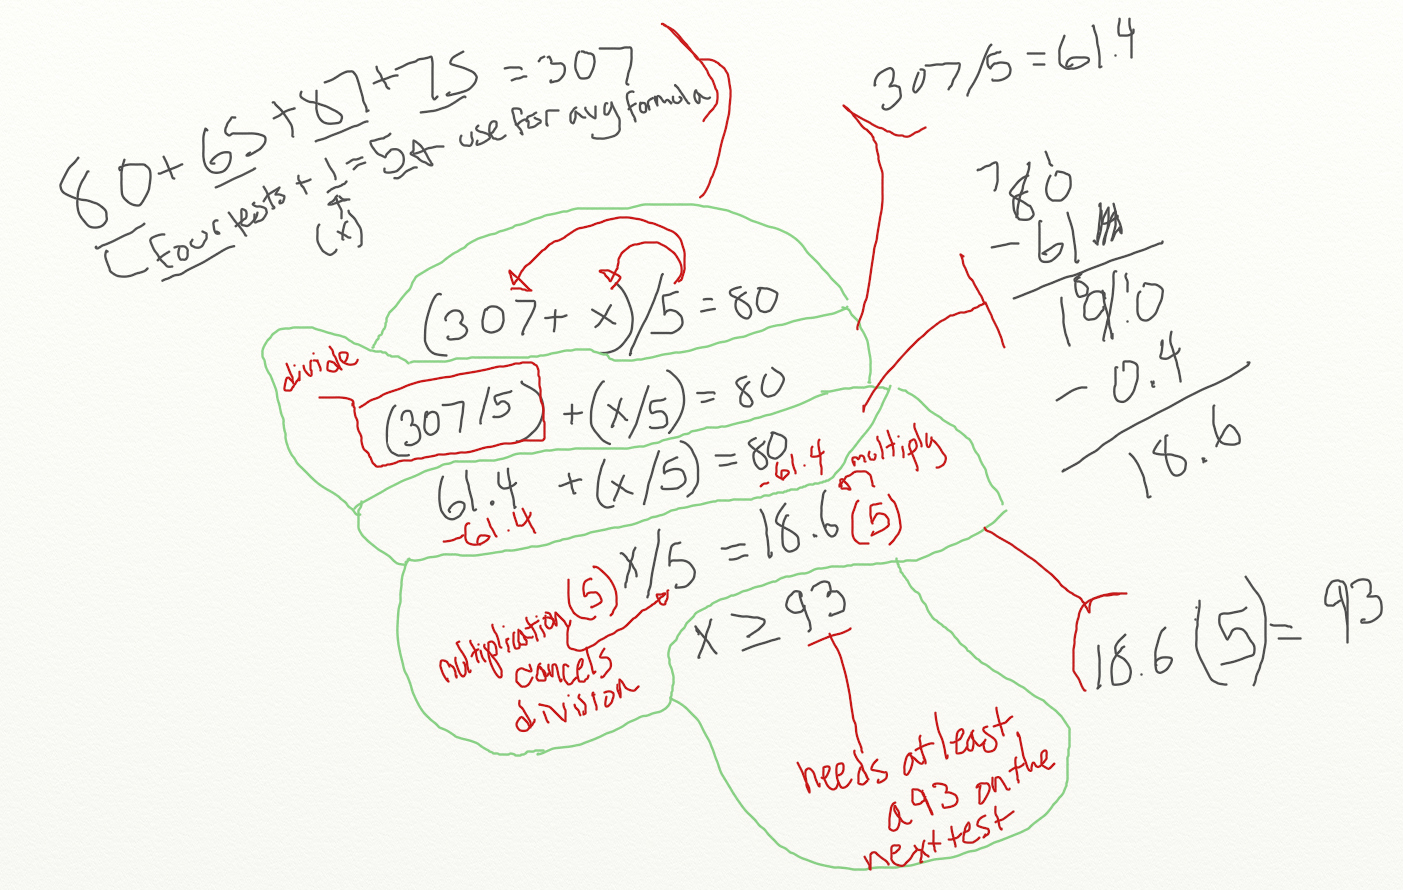 80 + 65 + 87 + 75 = 307
Four tests + 1 = 5 ← use for avg formula
(x)
(307 + x)/5 = 80
divide
(307/5) + (x/5) = 80
61.4 + (x/5) = 80
-61.4
-61.4
multiply
(5) x/5 = 18.6 (5)
multiplication
cancels
division
x ≥ 93
needs at least
a 93 on the
next test
307/5 = 61.4
7 1
80
- 61
8 1
19.0
- 0.4
18.6
18.6 (5) = 93